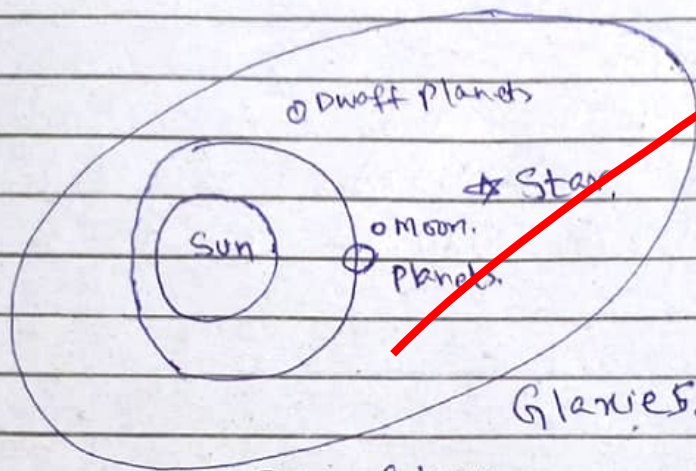 Dwaff planets
Star.
Sun
Moon.
planets.
Glaxies.